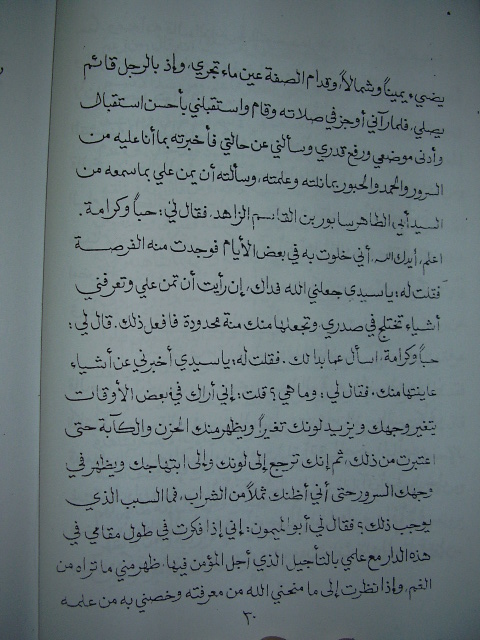 يضيء يميناً وشمالاً، وقدام الصفة عين ماء تجري، وإذ بالرجل قائم
يصلي، فلما رآني أوجز في صلاته وقام واستقبلني بأحسن استقبال
وأدنى موضعي ورفع قدري وسألني عن حالتي فأخبرته بما أنا عليه من
السرور والحمد والحبور بما نلته وعلمته، وسألته أن يمن علي بما سمعه من
السيد أبي الطاهر سابور بن القاسم الزاهد، فقال لي: حباً وكرامة.
اعلم، أيدك الله، أني خلوت به في بعض الأيام فوجدت منه الفرصة
فقلت له: يا سيدي جعلني الله فداك، إن رأيت أن تمن علي وتعرفني
أشياء تختلج في صدري وتجعلها منك منة محدودة فافعل ذلك. قال لي:
حباً وكرامة، اسأل عما بدا لك. فقلت له: يا سيدي أخبرني عن أشياء
عاينتها منك. فقال لي: وما هي؟ قلت: إني أراك في بعض الأوقات
يتغير وجهك ويزيد لونك تغيراً ويظهر منك الحزن والكآبة حتى
اعتبرت من ذلك، ثم إنك ترجع إلى لونك وإلى ابتهاجك ويظهر في
وجهك السرور حتى أني أظنك ثملاً من الشراب، فما السبب الذي
يوجب ذلك؟ فقال لي أبو الميمون: إني إذا فكرت في طول مقامي في
هذه الدار مع علمي بالتأجيل الذي أجل المؤمن فيها، ظهر مني ما تراه من
الغم، وإذا نظرت إلى ما منحني الله من معرفته وخصني به من علمه
٣٠